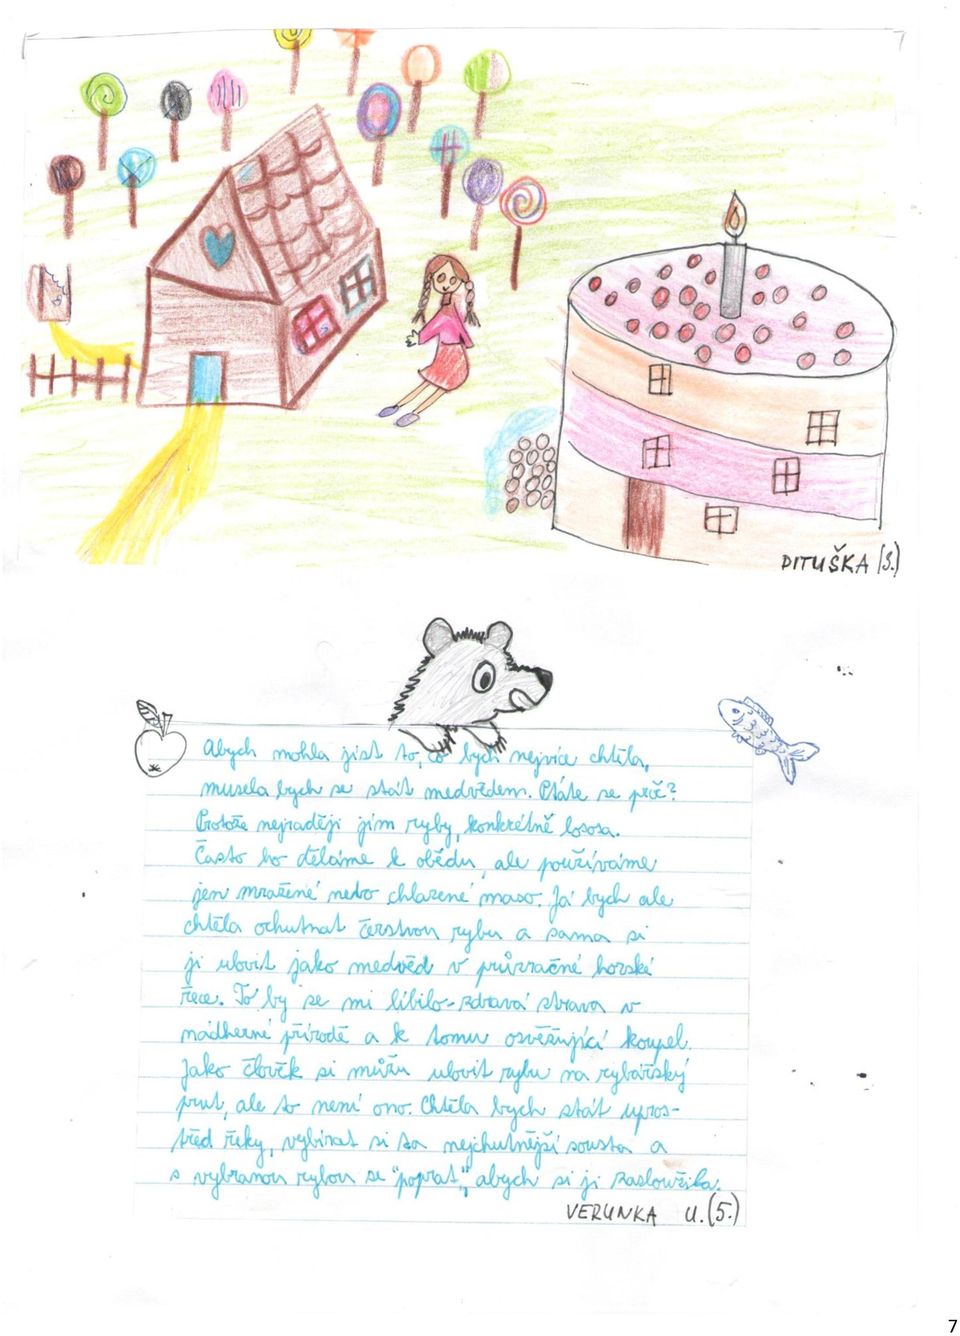 PITUŠKA (3.)
Abych mohla jíst to, co bych nejvíce chtěla,
musela bych se stát medvědem. Ptáte se proč?
Protože nejraději jím ryby, konkrétně lososa.
Často ho děláme k obědu, ale používáme
jen mražené nebo chlazené maso. Já bych ale
chtěla ochutnat čerstvou rybu a sama si
ji ulovit jako medvěd v průzračné horské
řece. To by se mi líbilo - zdravá strava v
nádherné přírodě a k tomu osvěžující koupel.
Jako člověk si můžu ulovit rybu na rybářský
prut, ale to není ono. Chtěla bych stát upros-
třed řeky, vybírat si ta nejchutnější sousta a
s vybranou rybou se "poprat", abych si ji zasloužila.
VERUNKA U. (5.)
7